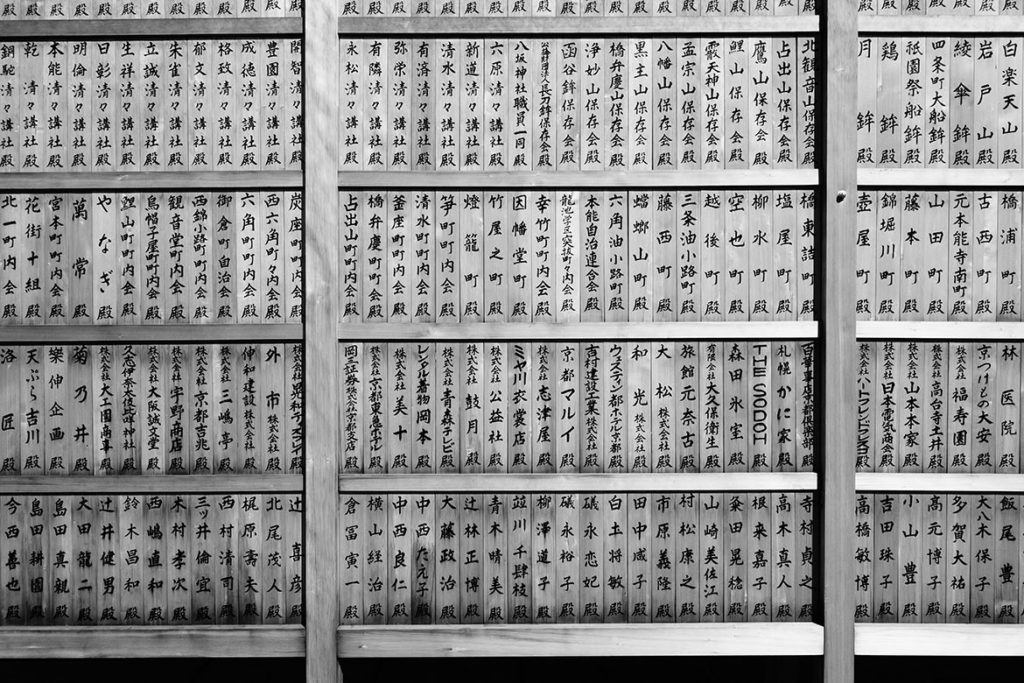 白楽天山殿
岩戸山殿
綾傘鉾殿
四条町大船鉾殿
祇園祭船鉾殿
鶏鉾殿
月鉾殿
北観音山保存会殿
占出山保存会殿
鷹山保存会殿
鯉山保存会殿
霰天神山保存会殿
孟宗山保存会殿
黒主山保存会殿
八幡山保存会殿
橋弁慶山保存会殿
浄妙山保存会殿
函谷鉾保存会殿
公益財団法人長刀鉾保存会殿
八坂神社職員一同殿
六原清々講社殿
新道清々講社殿
清水清々講社殿
有済清々講社殿
弥栄清々講社殿
有隣清々講社殿
永松清々講社殿
開智清々講社殿
豊園清々講社殿
成徳清々講社殿
格致清々講社殿
郁文清々講社殿
朱雀清々講社殿
立誠清々講社殿
生祥清々講社殿
日彰清々講社殿
明倫清々講社殿
本能清々講社殿
乾清々講社殿
銅駝清々講社殿
橋浦町殿
古西町殿
元本能寺南町殿
山田町殿
藤本町殿
錦堀川町殿
壷屋町殿
橋東詰町殿
塩屋町殿
柳水町殿
空也町殿
越後町殿
三条油小路町殿
藤西町殿
蟷螂山町殿
六角油小路町殿
本能自治連合会殿
龍池学区突抜町々内会殿
幸竹町町内会殿
因幡堂町殿
竹屋之町殿
燈籠町殿
笋町町内会殿
清水町町内会殿
釜座町町内会殿
橋弁慶町町会殿
占出山町町内会殿
炭座町町内会殿
西六角町々内会殿
六角町町内会殿
御倉町自治会殿
西錦小路町町内会殿
観音堂町町内会殿
烏帽子屋町町内会殿
鯉山町町内会殿
やなぎ殿
萬常殿
宮本町町内会殿
花街十組殿
北一町町内会殿
林医院殿
京つけもの大安殿
株式会社福寿園殿
株式会社高台寺土井殿
株式会社山本本家殿
株式会社日本電気商会殿
株式会社ハートフレンド殿
札幌かに家殿
THE SODOH殿
森田氷室殿
有限会社大久保衛生殿
旅館元奈古殿
大松株式会社殿
和光株式会社殿
ウェスティン都ホテル京都殿
吉村建設工業株式会社殿
京都マルイ殿
株式会社志津屋殿
ミヤ川衣裳店殿
株式会社公益社殿
株式会社鼓月殿
株式会社青森テレビ殿
レンタル着物岡本殿
株式会社美十殿
株式会社京都東急ホテル殿
岡三証券株式会社京都支店殿
外市株式会社殿
伸和建設株式会社殿
株式会社三嶋亭殿
株式会社京都吉兆殿
株式会社宇野商店殿
株式会社大阪誠文堂殿
久志伊奈太伎比咩神社殿
株式会社大工園商事殿
菊乃井殿
樂伸企画殿
天ぷら吉川殿
洛匠殿
飯尾豊殿
大八木保子殿
多賀大祐殿
高元博子殿
小山豊殿
吉田珠子殿
高橋敏博殿
寺村貞之殿
高木真人殿
根来嘉子殿
粂田晃稔殿
山崎美佐江殿
村松康之殿
市原義隆殿
田中成子殿
白土将敏殿
礒永恋妃殿
礒永裕子殿
柳澤道子殿
苙川千肆枝殿
青木晴美殿
辻林正博殿
大藤政治殿
中西たえ子殿
中西良仁殿
横山経治殿
倉冨寅一殿
辻喜彦殿
北尾茂人殿
梶原壽夫殿
西村清司殿
三ツ井倫宜殿
木村孝次殿
西嶋直和殿
鈴木昌和殿
辻井健男殿
大田龍二殿
島田真親殿
島田耕園殿
今西善也殿